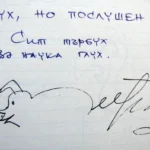 ух, но послушен
Сит търбух
за наука глух.